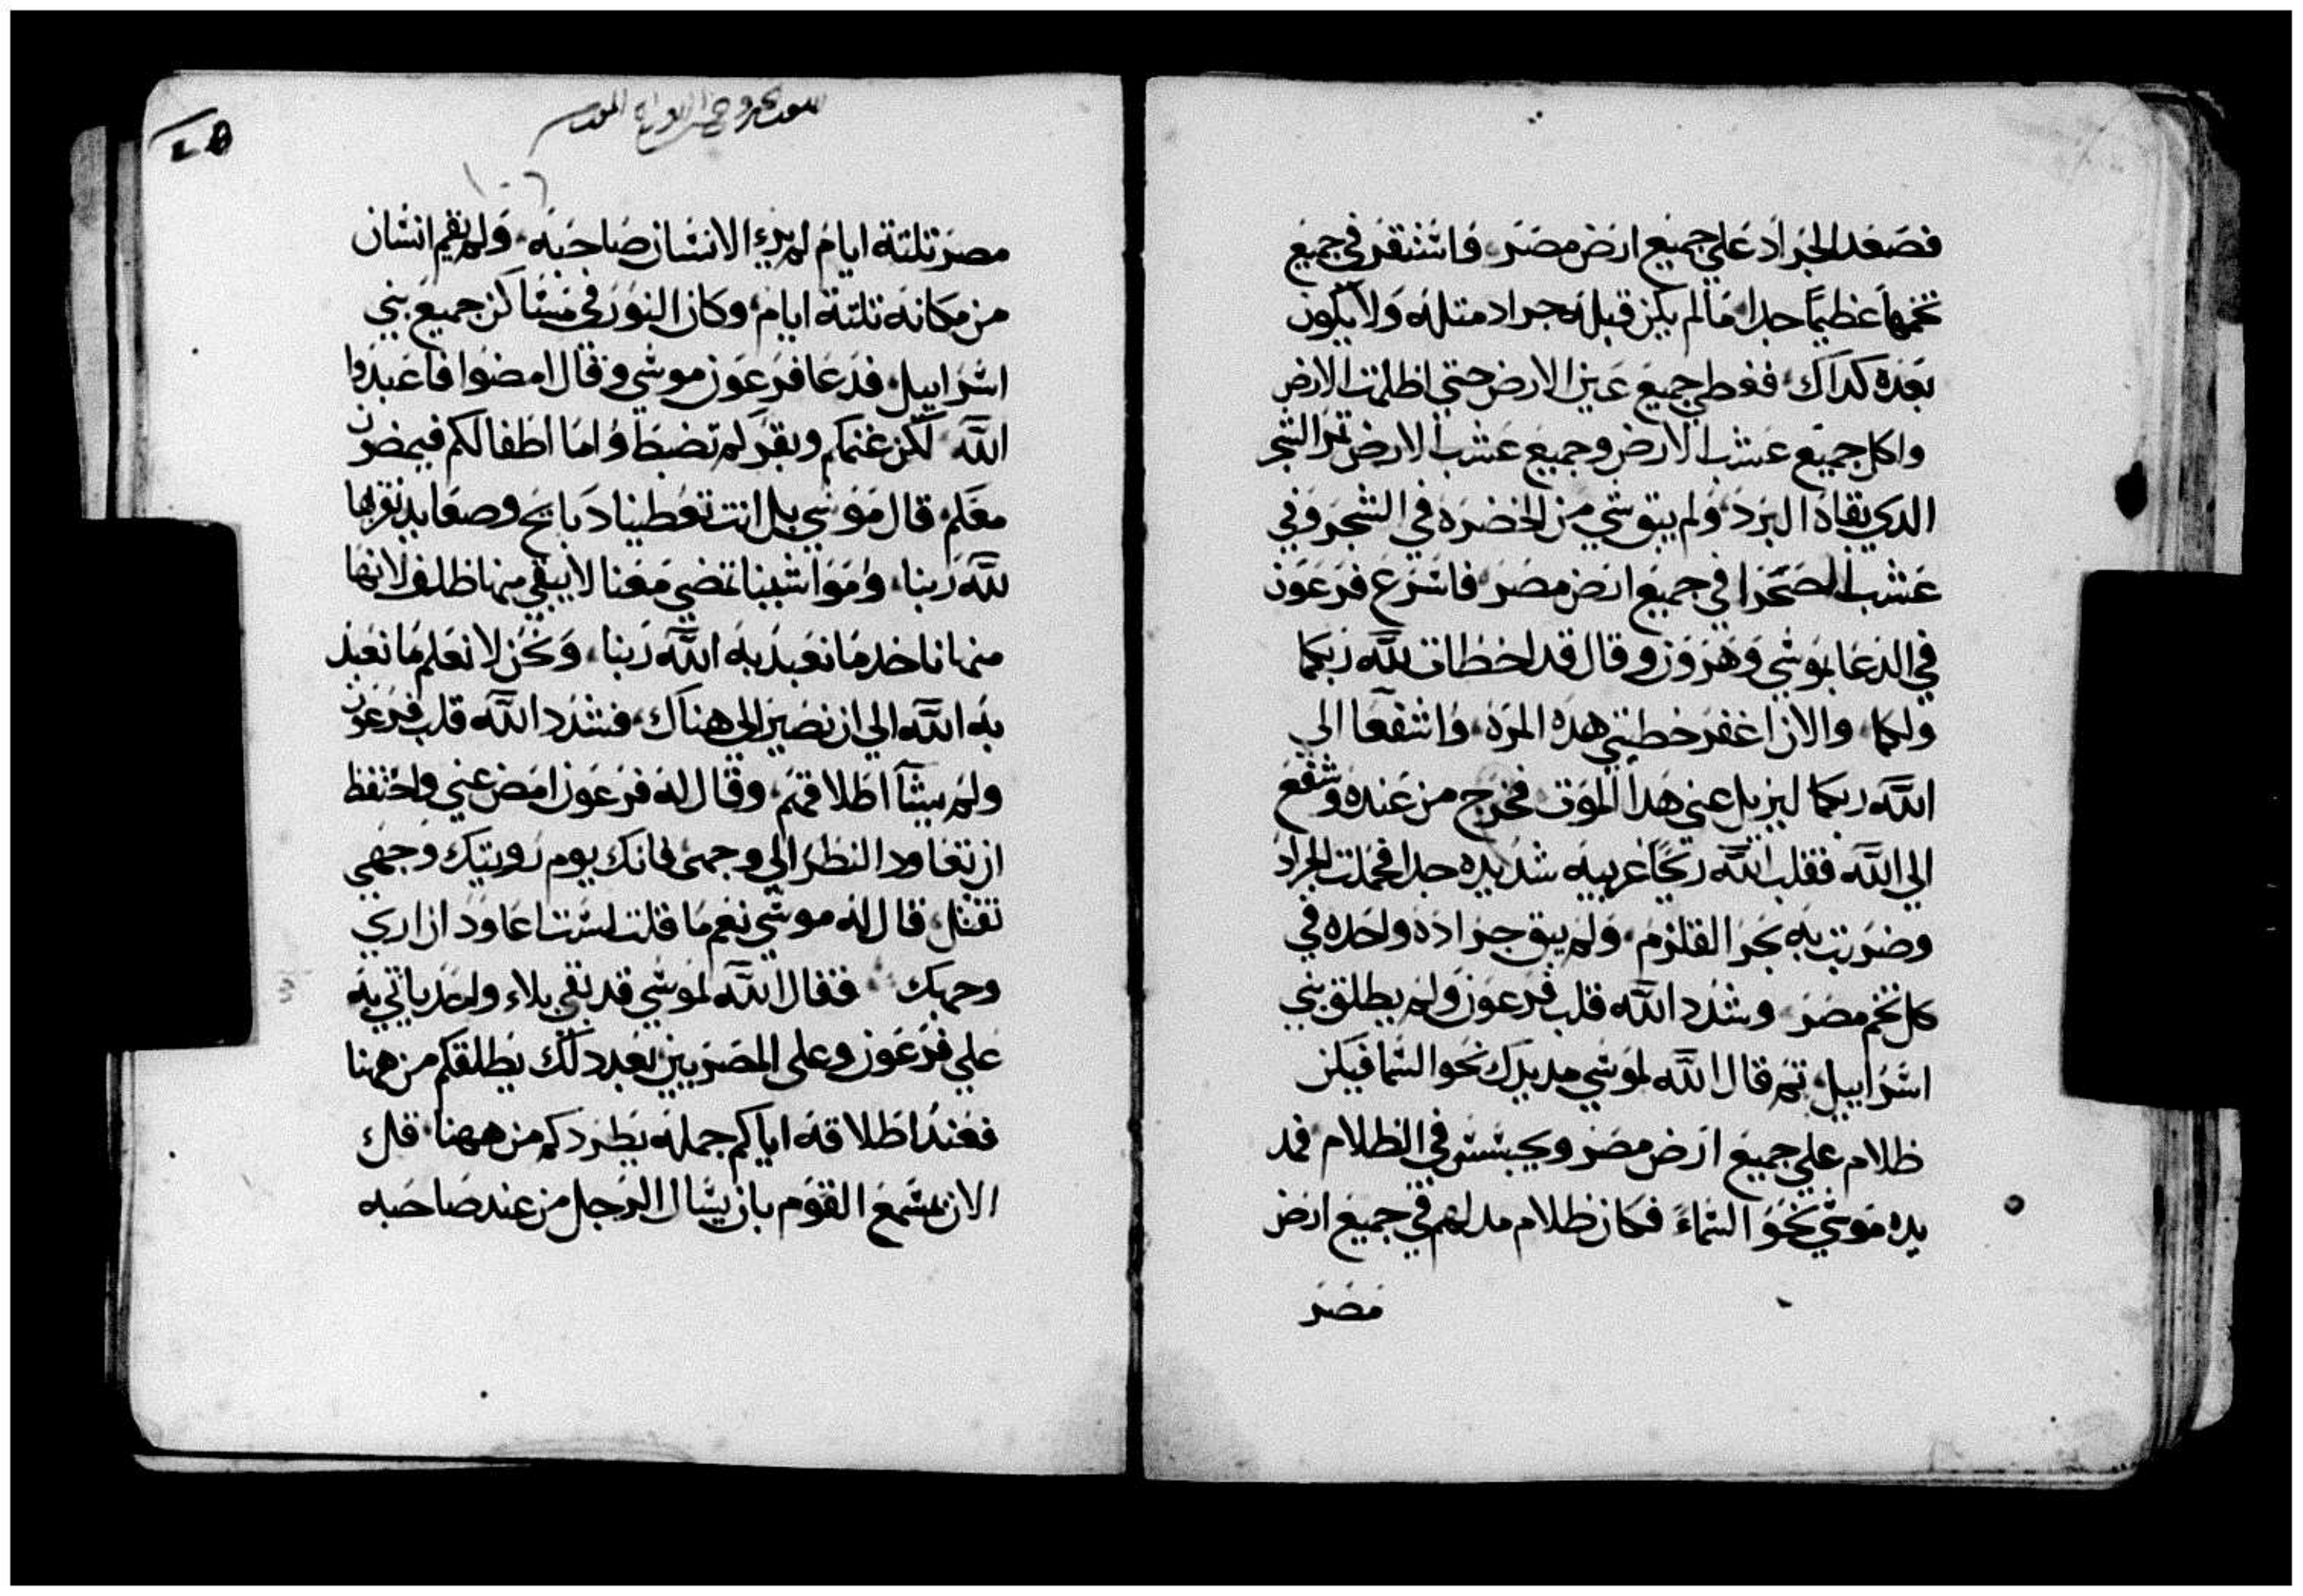 فصعد الجراد علي جميع ارض مصر فاستقر في جميع
تخمها عظيما جدا ما لم يكن قبله جراد متله ولا يكون
بعده كداك فغطي جميع عين الارض حتي اظلمت الارض
واكل جميع عشب الارض وجميع عشب الارض تمر الشجر
الدي بقاه البرد ولم يبق شي من الخضره في الشجر وفي
عشب الصحرا في جميع ارض مصر فاسرع فرعون
في الدعا بموسي وهرون وقال قد اخطات لله ربكما
ولكما والان اغفر خطيتي هده المره واشفعا الي
الله ربكما ليزيل عني هدا الموت فخرج من عنده وشفع
الي الله فقلب الله ريحا غربيه شديده جدا فحملت الجراد
وضربت به بحر القلزم ولم يبق جراده واحده في
كل تخم مصر وشدد الله قلب فرعون ولم يطلق بني
اسراييل تم قال الله لموسي مد يدك نحو السما فيكن
ظلام علي جميع ارض مصر ويجسس في الظلام فمد
يده موسي نحو السماء فكان ظلام مدلهم في جميع ارض
مصر
مصر تلتة ايام لم يري الانسان صاحبه ولم يقم انسان
من مكانه تلتة ايام وكان النور في مساكن جميع بني
اسراييل فدعا فرعون موسي وقال امضوا فاعبدوا
الله لكن غنمكم وبقركم تضبط واما اطفالكم فيمضون
معكم قال موسي بل انت تعطينا دبايح وصعايد نقربها
لله ربنا ومواشينا تمضي معنا لا يبقي منها ظلف لانها
منها ناخد ما نعبد به الله ربنا ونحن لا نعلم ما نعبد
به الله الي ان نصير الي هناك فشدد الله قلب فرعون
ولم يشآ اطلاقهم وقال له فرعون امض عني واحتفظ
ان تعاود النظر الي وجهي فانك يوم رويتك وجهي
تقتل قال له موسي نعم ما قلت لست اعاود ان اري
وجهك فقال الله لموسي قد بقي بلاء واحد ياتي به
علي فرعون وعلي المصريين بعد دلك يطلقكم من ههنا
فعند اطلاقه اياكم جمله يطردكم من ههنا قل
الان بمسمع القوم بان يسال الرجل من عند صاحبه